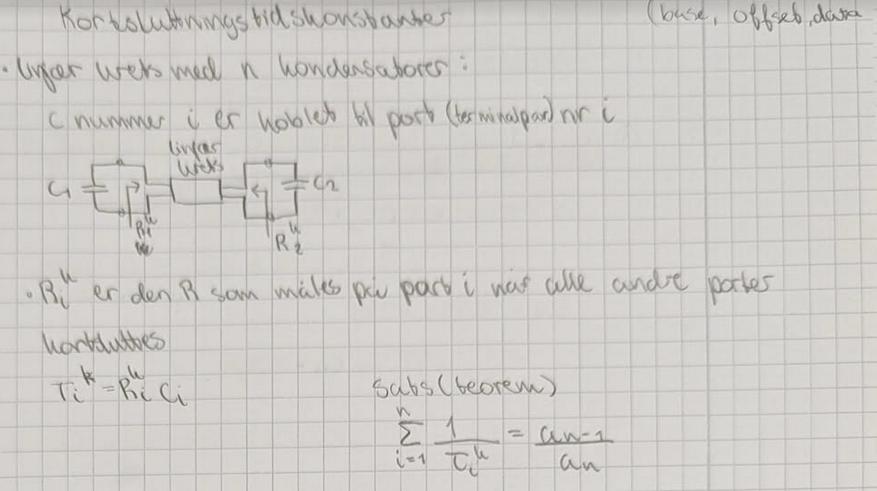 Kortslutningstidskonstanter
(base, offset, data
· Linjær krets med n kondensatorer:
C nummer i er koblet til port (terminalpar) nr i
linjær
krets
C₁
C₂
R₁ᵏ
R₂ᵏ
· Rᵢᵏ er den R som måles på port i når alle andre porter
kortsluttes
τᵢᵏ = Rᵢᵏ Cᵢ
Sats (teorem)
n
∑ 1/τᵢᵏ = aₙ₋₁/aₙ
i=1